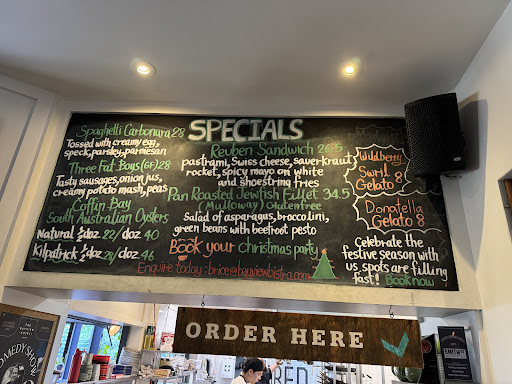 SPECIALS
Spaghetti Carbonara 28
Tossed with creamy egg,
speck, parsley, parmesan
Three Fat Boys (GF) 28
Tasty sausages, onion jus,
creamy potato mash, peas
Coffin Bay
South Australian Oysters
Natural ½doz 22/doz 40
Kilpatrick ½doz 24/doz 46
Reuben Sandwich 26.5
pastrami, Swiss cheese, sauerkraut,
rocket, spicy mayo on white
and shoestring fries
Pan Roasted Jewfish Fillet 34.5
(Mulloway) Glutenfree
Salad of asparagus, broccolini,
green beans with beetroot pesto
Book your christmas party
Enquire today: brice@bayviewbistro.com
Wildberry
Swirl
Gelato 8
Donatella
Gelato 8
Celebrate the
festive season with
us spots are filling
fast! Book now
ORDER HERE
COMEDY SHOW